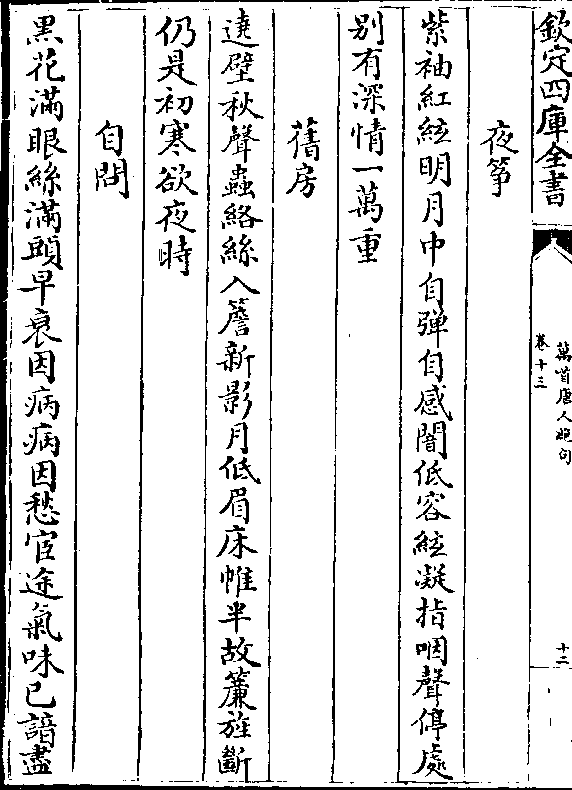 欽定四庫全書
萬首唐人絶句
卷十三
十二
夜筝
紫袖紅絃明月中自彈自感闇低容絃凝指咽聲停處
别有深情一萬重
舊房
遶壁秋聲蟲絡絲入簷新影月低眉床帷半故簾旌斷
仍是初寒欲夜時
自問
黒花滿眼絲滿頭早衰因病病因愁宦途氣味已諳盡